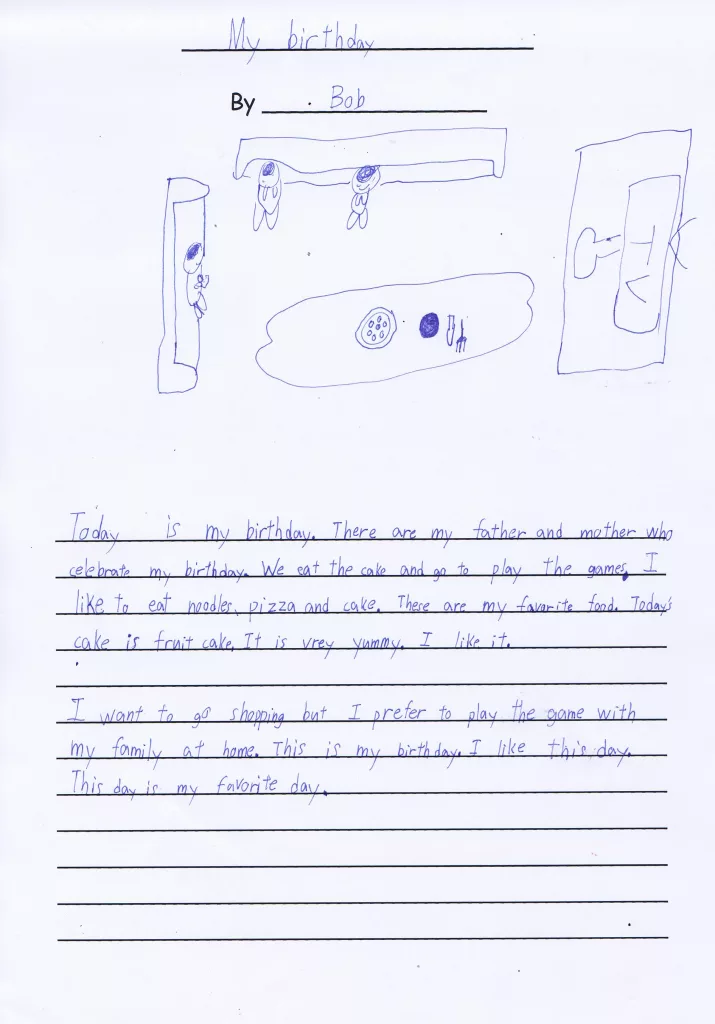 My birthday
By Bob
TV
Today is my birthday. There are my father and mother who
celebrate my birthday. We eat the cake and go to play the games. I
like to eat noodles, pizza and cake. These are my favorite food. Today's
cake is fruit cake. It is vrey yummy. I like it.
I want to go shopping but I prefer to play the game with
my family at home. This is my birthday. I like this day.
This day is my favorite day.